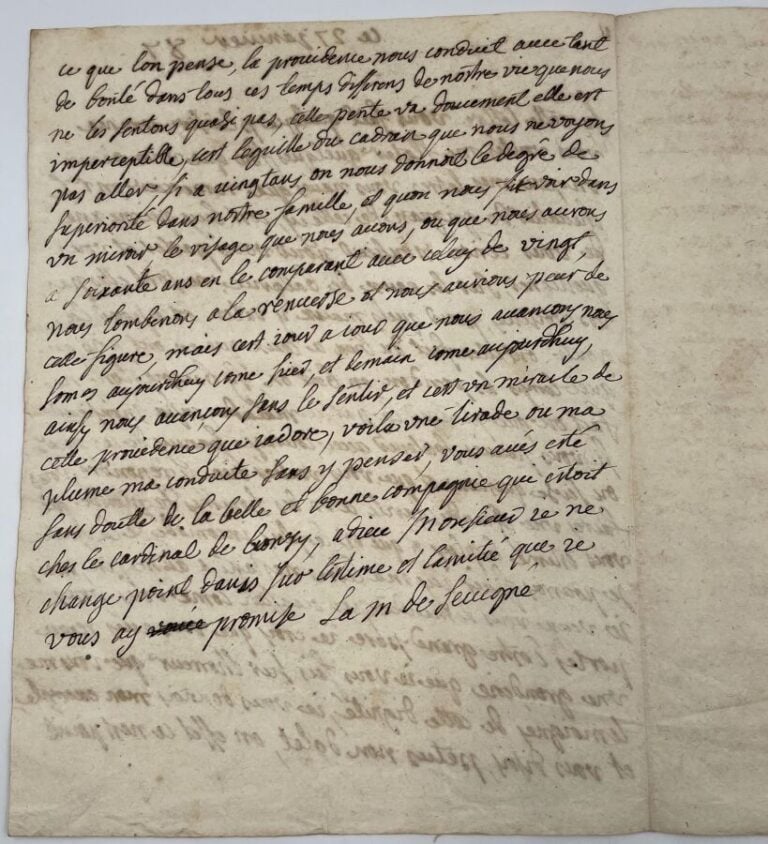 ce que lon pense, la providence nous conduit avec tant
de bonté dans tous ces temps differens de nostre vie que nous
ne les sentons quasi pas, cette pente va doucement elle est
imperceptible, cest leguille du cadran que nous ne voyons
pas aller, si a vingt ans on nous donnoit le degré de
superiorité dans nostre famille, et quon nous fit voir dans
vn miroir le visage que nous auons, ou que nous aurons
a soixante ans en le comparant auec celuy de vingt,
nous tomberions a la renuerse et nous aurions peur de
cette figure, mais cest iour a iour que nous auançons nous
somes aujourdhuy come hier, et demain come aujourdhuy,
ainsy nous auançons sans le sentir, et cest vn miracle de
cette prouidence que iadore, voila vne tirade ou ma
plume ma conduite sans y penser, vous aués esté
sans doutte de la belle et bonne compagnie qui estoit
ches le cardinal de bonzy, adieu Monsieur ie ne
change point dauis sur lestime et lamitié que ie
vous ay promise La m de Seuigné